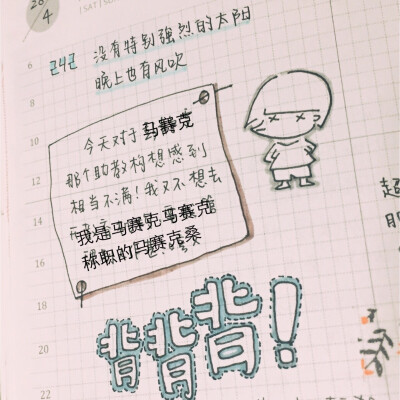 28
4
|SAT|SUN
242 没有特别强烈的太阳
晚上也有风吹
今天对于马赛克
那个助教构想感到
相当不满！我又不想去
我是马赛克马赛克
称职的马赛克桑
背背背！
超
6
8
10
12
14
16
18
20
22